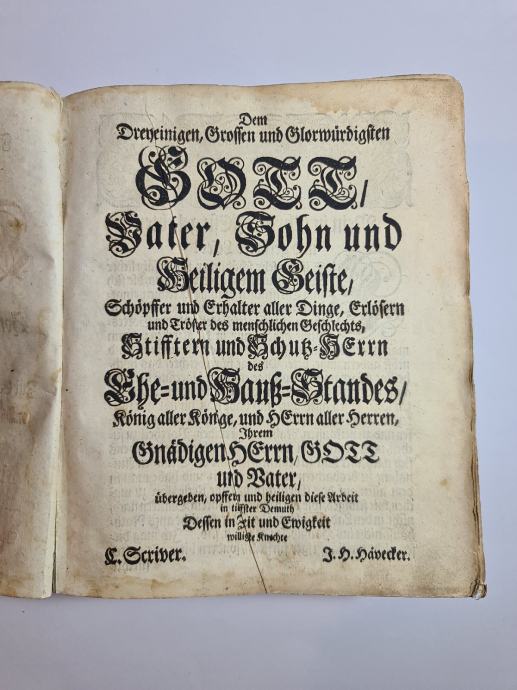 Dem
Dreyeinigen, Grossen und Glorwürdigsten
GOTT/
Vater, Sohn und
Heiligem Geiste/
Schöpffer und Erhalter aller Dinge, Erlösern
und Tröster des menschlichen Geschlechts,
Stifftern und Schutz-HErrn
des
Ehe- und Hauß-Standes/
König aller Könige, und HErrn aller Herren,
Ihrem
Gnädigen HErrn, GOTT
und Vater,
übergeben, opffern und heiligen diese Arbeit
in tiffster Demuth
Dessen in Zeit und Ewigkeit
willigste Knechte
C. Scriver. J. H. Hävecker.